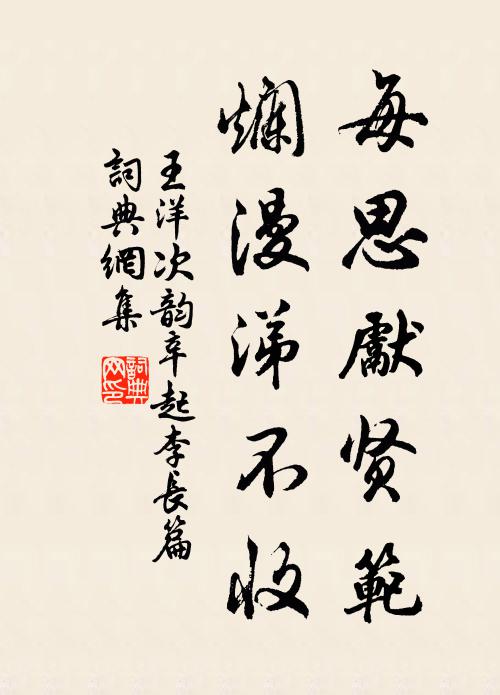 每思獻贤範
爛漫涕不收
王洋次韵辛起李長篇
詞典網集
詞典网印